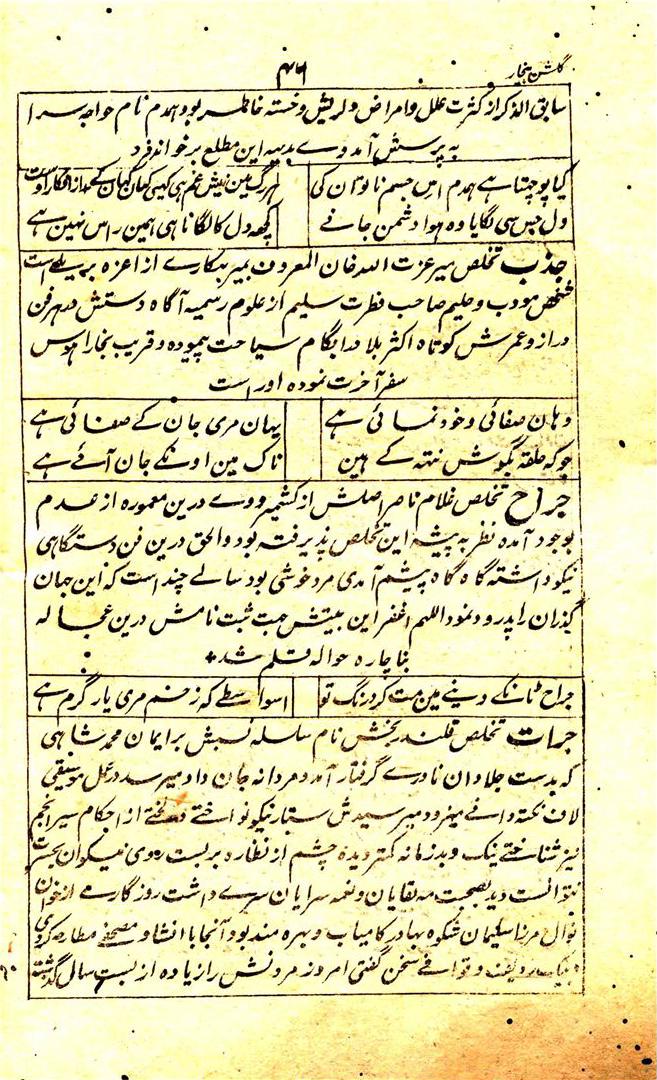 گلشن بیخار
۴۶
سابق الذکر از کثرت علل و امراض دلریش و خسته خاطر بود ہمدم نام خواجہ سرا
بہ پرسش آمد وے بدیہہ این مطلع بر خواند فرد
کیا پوچھتا ہے ہمدم اس جسم ناتوان کی
ہر رگ مین نیش غم ہی کہیی کہان کہان کی از افکار اوست
دل جس سی لگایا وہ ہوا دشمن جانے
کچھ دل کا لگانا ہی ہمین راس نہین ہے
جذب تخلص میر عزت اللہ خان المعروف بمیر بہکاری از اعزہ بریلی است
شخص مودب و حلیم صاحب فطرت سلیم از علوم رسمیہ آگاہ دستش در ہر فن
دراز و عمرش کوتاہ اکثر بلاد را بگام سیاحت پیمودہ و قریب بخارا ہوس
سفر آخرت نمودہ اوراست
وہان صفائی و خود نمائی ہے
یہان مری جان کے صفائی ہے
جو کہ حلقہ بگوش نتھ کے ہین
ناک مین اونکے جان آئے ہے
جراح تخلص غلام ناصر اصلش از کشمیر و وے درین معمورہ از عدم
بوجود آمدہ نظر بہ پیشہ این تخلص پذیرفتہ بود والحق درین فن دستگاہی
نیکو داشتہ گاہ گاہ پیشم آمدی مرد خوشی بود سالے چند است کہ این جہان
گذران را پدرود نمود اللہم اغفر این بیتش جہت ثبت نامش درین عجالہ
بناچارہ حوالہ قلم شد
جراح ٹانکے دینے مین مت کر درنگ تو
اسواسطے کہ زخم مری یار گرم ہے
جرات تخلص قلندر بخش نام سلسلہ نسبش برایمان محمد شاہی
کہ بدست جلادان نادرے گرفتار آمد و مردانہ جان داد میرسد در عمل موسیقی
لاف نکتہ دانے میزد و میرسیدش ستار نیکو نواختے و لختے از احکام سیر انجم
نیز شناختے نیک و بد زمانہ کمتر دیدہ چشم از نظارہ بربست روی نیکوان بحسرت
نتوانست دید بصحبت مہ لقایان و نغمہ سرایان سرے داشت روزگارے از خوان
نوال مرزا سلیمان شکوہ بہادر کامیاب و بہرہ مند بود آنجا با انشا و مصحفے مطارحہ کردی
ردیف و قوافے سخن گفتی امروز مردنش را زیادہ از بست سال گذشتہ